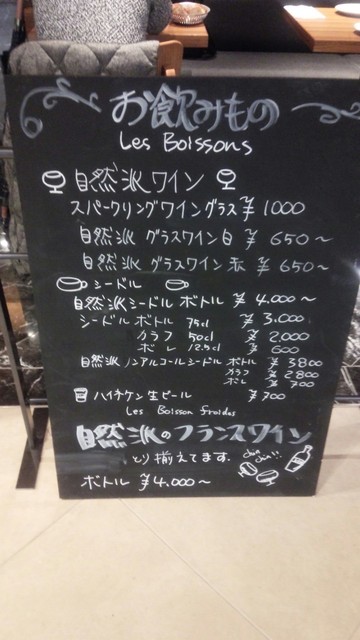 お飲みもの
Les Boissons
自然派ワイン
スパークリングワイングラス ¥1000
自然派 グラスワイン白 ¥650～
自然派 グラスワイン赤 ¥650～
シードル
自然派シードル ボトル ¥4,000～
シードル ボトル 75cl ¥3,000
カラフ 50cl ¥2,000
ボレ 12.5cl ¥600
自然派 ノンアルコールシードル ボトル ¥3800
カラフ ¥2800
ボレ ¥700
ハイネケン生ビール ¥700
Les Boisson froides
自然派のフランスワイン
とり揃えてます。
ボトル ¥4,000～